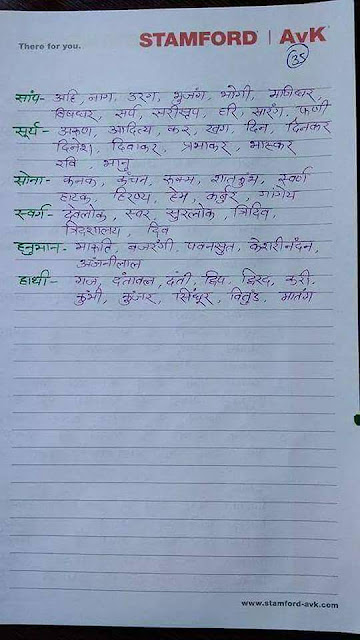 There for you.
STAMFORD | AvK
35
सांप- अहि, नाग, उरग, भुजंग, भोगी, मणिधर,
विषधर, सर्प, सरीसृप, हरि, सारंग, फणी
सूर्य- अरूण, आदित्य, कर, खग, दिन, दिनकर
दिनेश, दिवाकर, प्रभाकर, भास्कर
रवि, भानु
सोना- कनक, कंचन, रुक्म, शातकुंभ, स्वर्ण
हाटक, हिरण्य, हेम, कर्बुर, गांगेय
स्वर्ग- देवलोक, स्वर, सुरलोक, त्रिदिव,
त्रिदशालय, दिव
हनुमान- मारूति, बजरंगी, पवनसुत, केशरीनंदन,
अंजनीलाल
हाथी- गज, दंतावल, दंती, द्विप, द्विरद, करी
कुंभी, कुंजर, सिंधूर, वितुंड, मातंग
www.stamford-avk.com